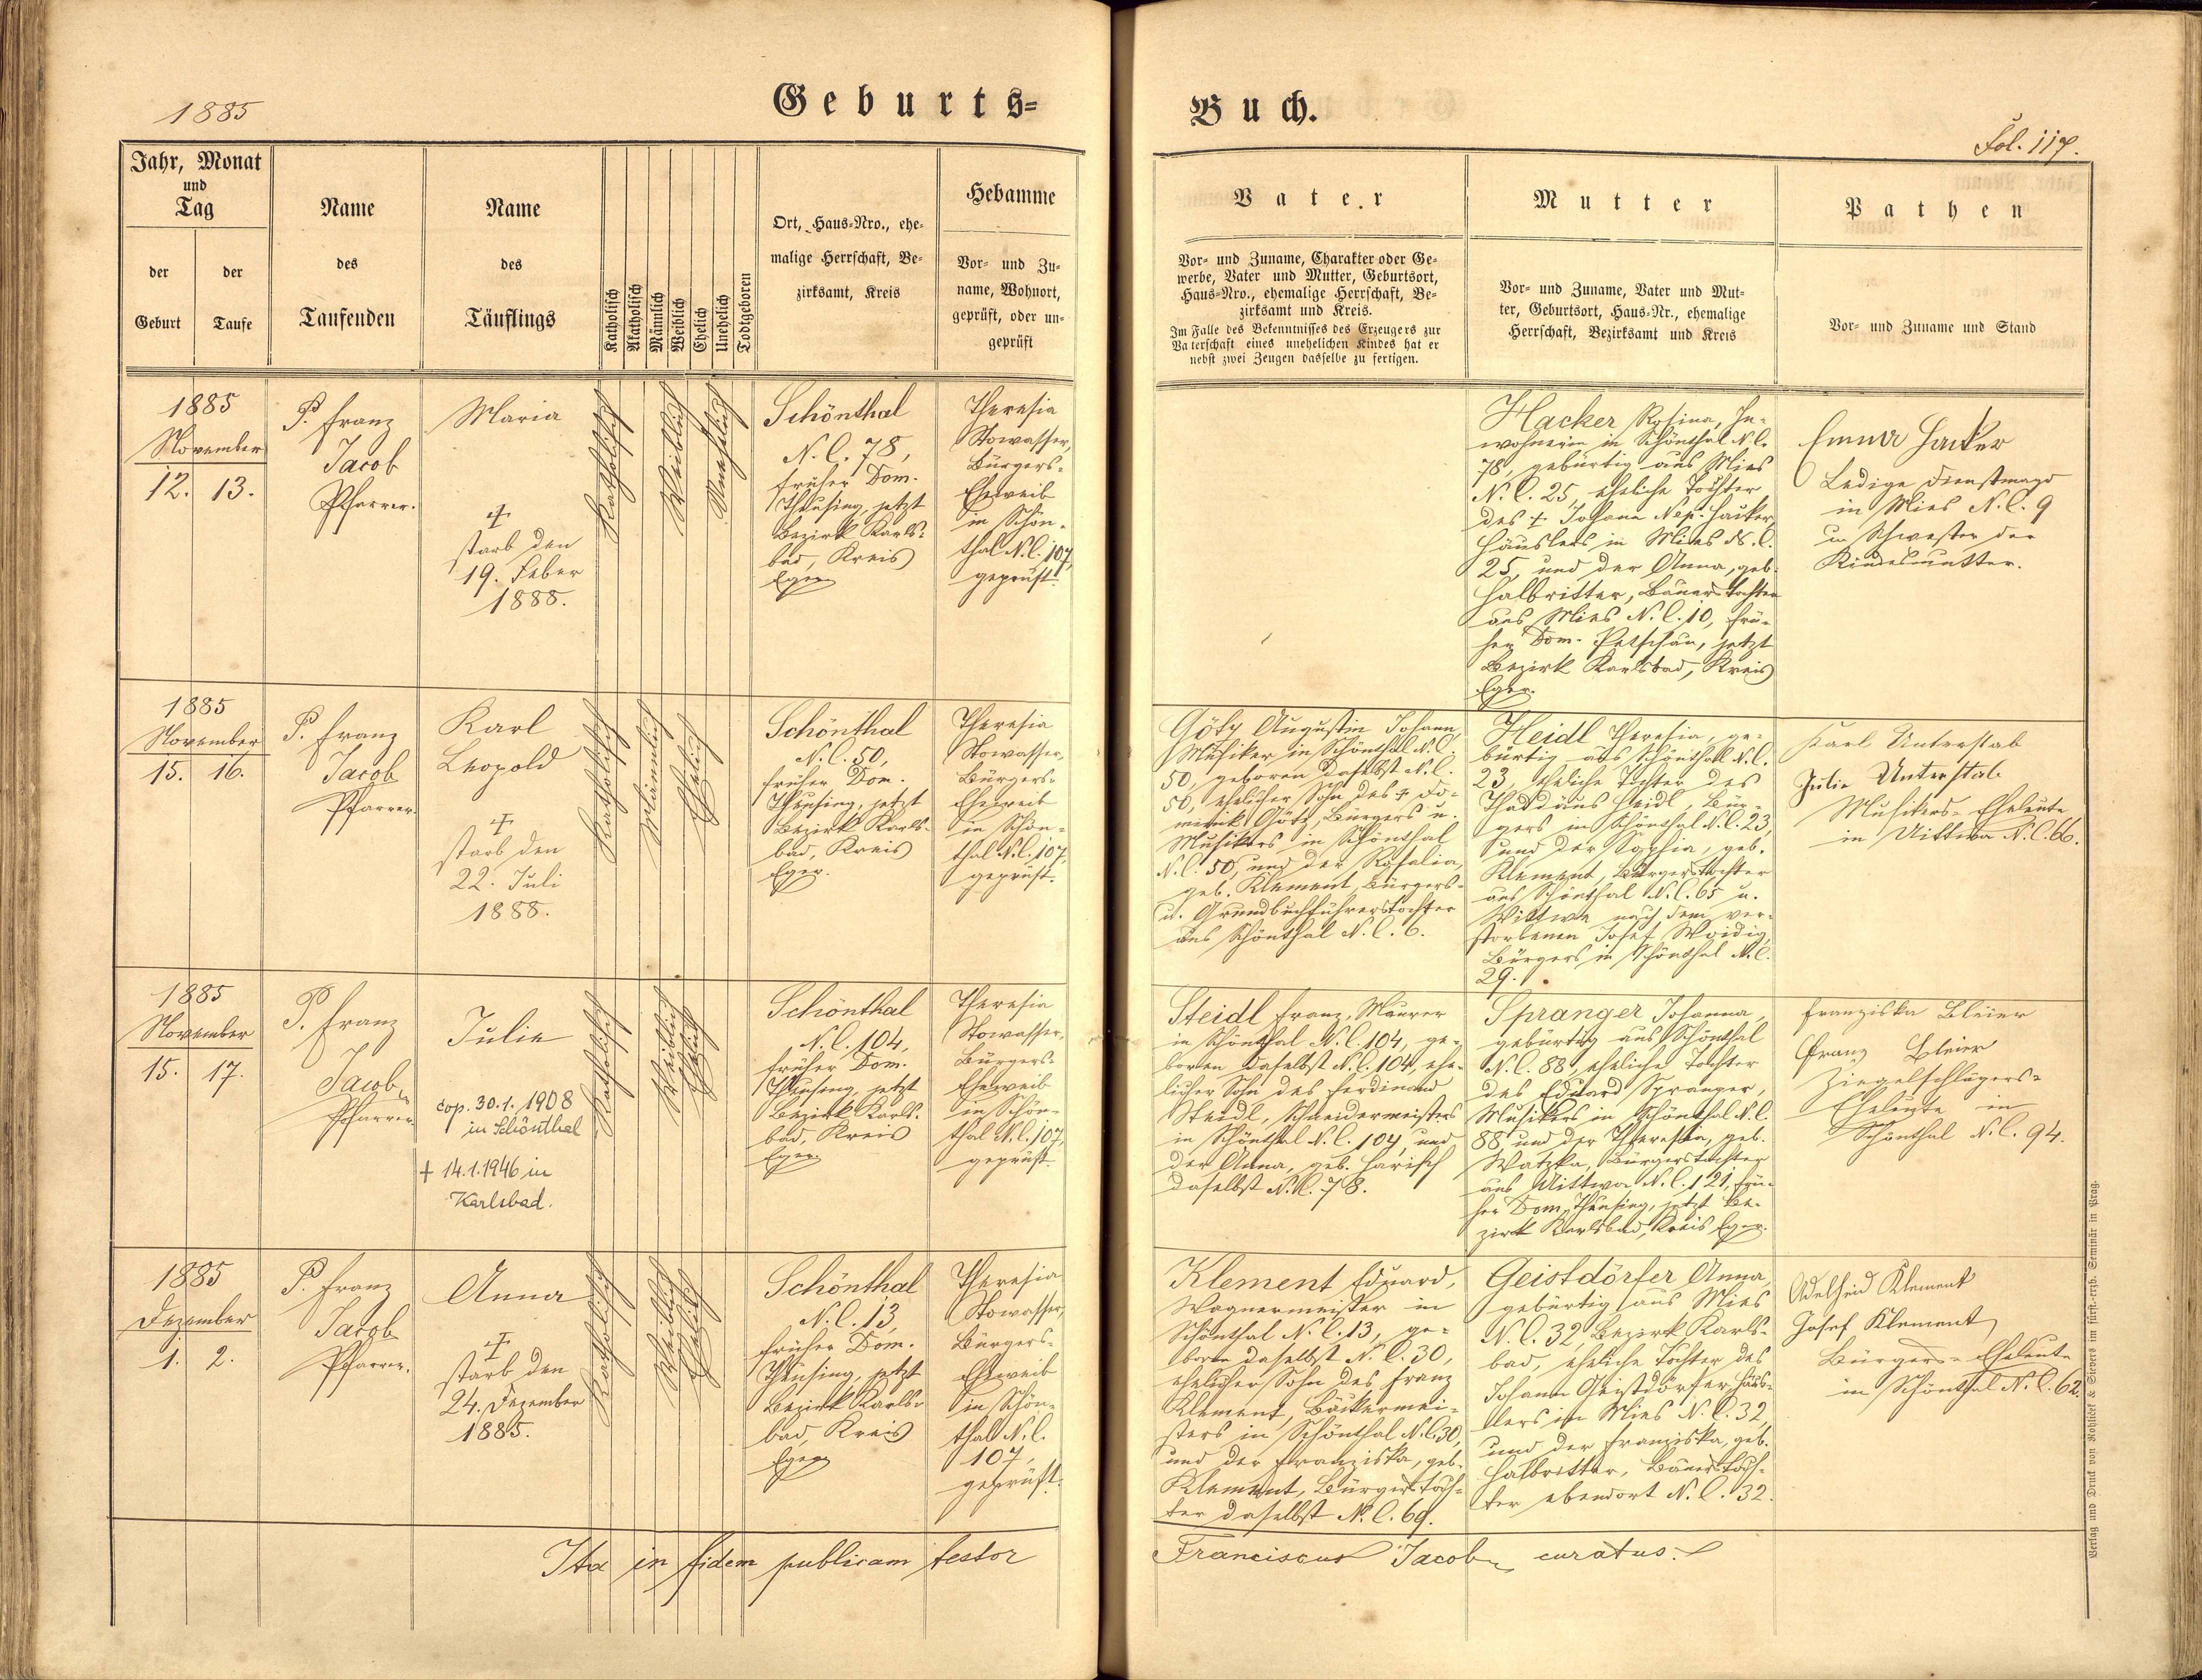 1885
Geburts=
Buch.
Fol. 117.
Jahr, Monat
und
Tag
der
Geburt
der
Taufe
Name
des
Taufenden
Name
des
Täuflings
Katholisch
Akatholisch
Männlich
Weiblich
Ehelich
Unehelich
Todtgeboren
Ort, Haus-Nro., ehe-
malige Herrschaft, Be-
zirksamt, Kreis
Hebamme
Vor- und Zu-
name, Wohnort,
geprüft, oder un-
geprüft
Vater
Vor- und Zuname, Charakter oder Ge-
werbe, Vater und Mutter, Geburtsort,
Haus-Nro., ehemalige Herrschaft, Be-
zirksamt und Kreis.
Im Falle des Bekenntnisses des Erzeugers zur
Vaterschaft eines unehelichen Kindes hat er
nebst zwei Zeugen dasselbe zu fertigen.
Mutter
Vor- und Zuname, Vater und Mut-
ter, Geburtsort, Haus-Nr., ehemalige
Herrschaft, Bezirksamt und Kreis
Pathen
Vor- und Zuname und Stand
1885
November
12. 13.
P. Franz
Jacob
Pfarrer.
Maria
†
starb den
19. Feber
1888.
Katholisch
Weiblich
Unehelich
Schönthal
N. C. 78,
früher Dom.
Theusing, jetzt
Bezirk Karls-
bad, Kreis
Eger
Theresia
Stowasser,
Bürgers-
Eheweib
in Schön-
thal N.C. 107,
geprüft.
Hacker Rosina, In-
wohnerin in Schönthal N.C.
78, gebürtig aus Mies
N. C. 25, eheliche Tochter
des † Johann Nep. Hacker,
Häuslers in Mies N. C.
25, und der Anna, geb.
Halbritter, Bauerstochter
aus Mies N. C. 10, frü-
her Dom. Petschau, jetzt
Bezirk Karlsbad, Kreis
Eger.
Emma Hacker
Ledige Dienstmagd
in Mies N. C. 9
u. Schwester der
Kindesmutter.
1885
November
15. 16.
P. Franz
Jacob
Pfarrer.
Karl
Leopold
†
starb den
22. Juli
1888.
Katholisch
Männlich
Ehelich
Schönthal
N. C. 50,
früher Dom.
Theusing, jetzt
Bezirk Karls-
bad, Kreis
Eger.
Theresia
Stowasser,
Bürgers-
Eheweib
in Schön-
thal N.C. 107,
geprüft.
Götz Augustin Johann,
Musiker in Schönthal N.C.
50, geboren daselbst N.C.
50, ehelicher Sohn des † Do-
minik Götz, Bürgers u.
Musikers in Schönthal
N.C. 50, und der Rosalia,
geb. Klement, Bürgers-
u. Grundbuchführerstochter
aus Schönthal N. C. 6.
Heidl Theresia, ge-
bürtig aus Schönthal N.C.
23, eheliche Tochter des
Thaddäus Heidl, Bür-
gers in Schönthal N.C. 23,
und der Sophia, geb.
Klement, Bürgerstochter
aus Schönthal N. C. 65 u.
Wittwe nach dem ver-
storbenen Josef
Bürgers in Schönthal N.C.
29.
Karl Unterstab
Julie Unterstab
Musikers-Eheleute
in Uittwa N. C. 66.
1885
November
15. 17.
P. Franz
Jacob
Pfarrer
Julie
cop. 30.1. 1908
in Schönthal
† 14.1.1946 in
Karlsbad.
Katholisch
Weiblich
Ehelich
Schönthal
N. C. 104,
früher Dom.
Theusing, jetzt
Bezirk Karls-
bad, Kreis
Eger.
Theresia
Stowasser,
Bürgers-
Eheweib
in Schön-
thal N.C. 107,
geprüft
Steidl Franz, Maurer
in Schönthal N. C. 104, ge-
boren daselbst N.C. 104, ehe-
licher Sohn des Ferdinand
Steidl, Schneidermeisters
in Schönthal N. C. 104, und
der Anna, geb. Harisch
daselbst N. C. 78.
Spranger Johanna,
gebürtig aus Schönthal
N. C. 88, eheliche Tochter
des Eduard Spranger,
Musikers in Schönthal N.C.
88 und der Theresia, geb.
Watzka, Bürgerstochter
aus Uittwa N. C. 121, frü-
her Dom. Theusing, jetzt Be-
zirk Karlsbad, Kreis Eger.
Franziska Bleier
Franz Bleier
Ziegelschlägers-
Eheleute in
Schönthal N. C. 94.
1885
Dezember
1. 2.
P. Franz
Jacob
Pfarrer.
Anna
†
starb den
24. Dezember
1885.
Katholisch
Weiblich
Ehelich
Schönthal
N. C. 13,
früher Dom.
Theusing, jetzt
Bezirk Karls-
bad, Kreis
Eger
Theresia
Stowasser,
Bürgers-
Eheweib
in Schön-
thal N. C.
107,
geprüft.
Klement Eduard,
Wagnermeister in
Schönthal N. C. 13, ge-
boren daselbst N. C. 30,
ehelicher Sohn des Franz
Klement, Bäckermei-
sters in Schönthal N.C. 30,
und der Franziska, geb.
Klement, Bürgerstoch-
ter daselbst N. C. 69.
Geistdörfer Anna,
gebürtig aus Mies
N. C. 32, Bezirk Karls-
bad, eheliche Tochter des
Johann Geistdörfer, Häus-
lers in Mies N. C. 32,
und der Franziska, geb.
Halbritter, Bauerstoch-
ter ebendort N. C. 32.
Adelheid Klement
Josef Klement
Bürgers-Eheleute
in Schönthal N. C. 62.
Ita in fidem publicam testor
Franciscus Jacob, curatus.
Verlag und Druck von Rohliček & Sievers im fürst.-erzb. Seminär in Prag.